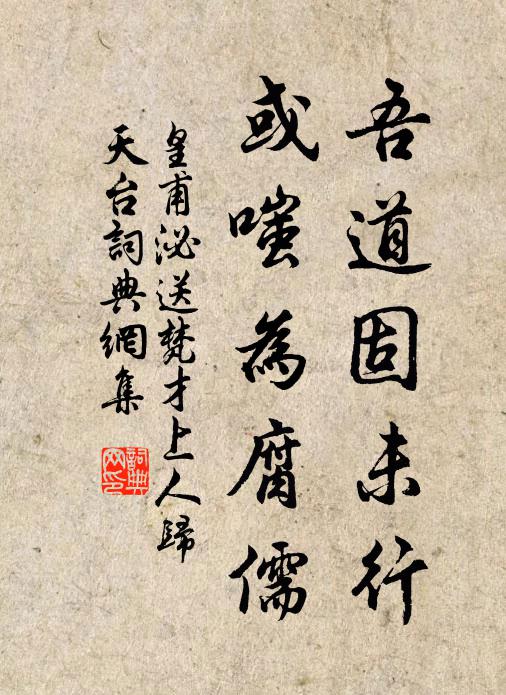 吾道固未行
或嗤為腐儒
皇甫泌送梵才上人歸
天台詞典網集
詞典网印